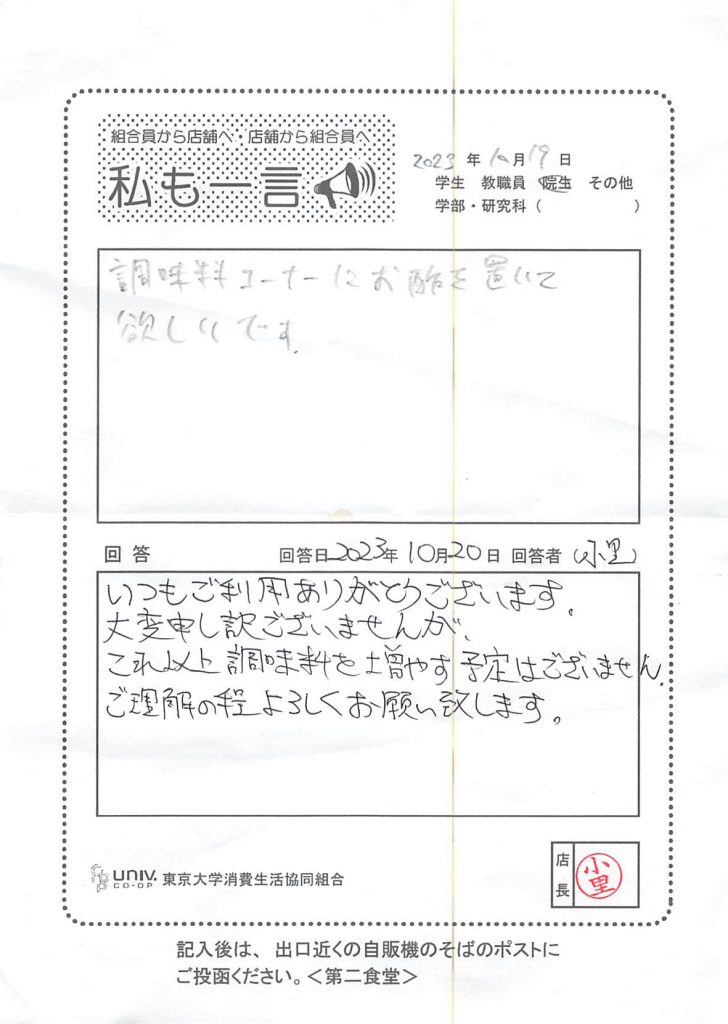 組合員から店舗へ・店舗から組合員へ
私も一言
2023 年 10月 19 日
学生 教職員 院生 その他
学部・研究科( )
調味料コーナーにお酢を置いて
欲しいです。
回答 回答日2023年 10月20日 回答者(小里)
いつもご利用ありがとうございます。
大変申し訳ございませんが、
これ以上調味料を増やす予定はございません。
ご理解の程よろしくお願い致します。
UNIV.
CO-OP
東京大学消費生活協同組合
店長
小里
記入後は、出口近くの自販機のそばのポストに
ご投函ください。<第二食堂>